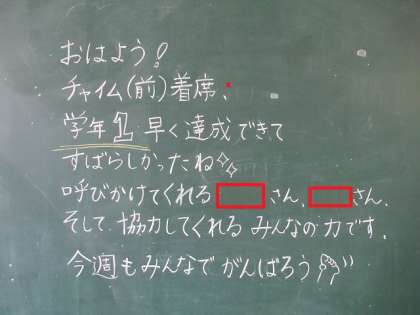 おはよう!
チャイム(前)着席、
学年1 早く達成できて
すばらしかったね
呼びかけてくれる さん、 さん、
そして 協力してくれる みんなの力です。
今週もみんなで がんばろう